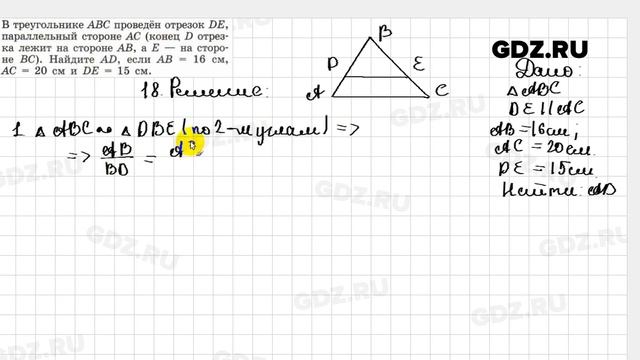 В треугольнике ABC проведён отрезок DE,
параллельный стороне AC (конец D отрез-
ка лежит на стороне AB, а E — на сторо-
не BC). Найдите AD, если AB = 16 см,
AC = 20 см и DE = 15 см.
GDZ.RU
18. Решение:
B
D
E
A
C
Дано:
△ABC
DE || AC
AB = 16см;
AC = 20см.
DE = 15см.
Найти: AD
1. △ABC ∾ △DBE (по 2-м углам) =>
=> AB/BD = A